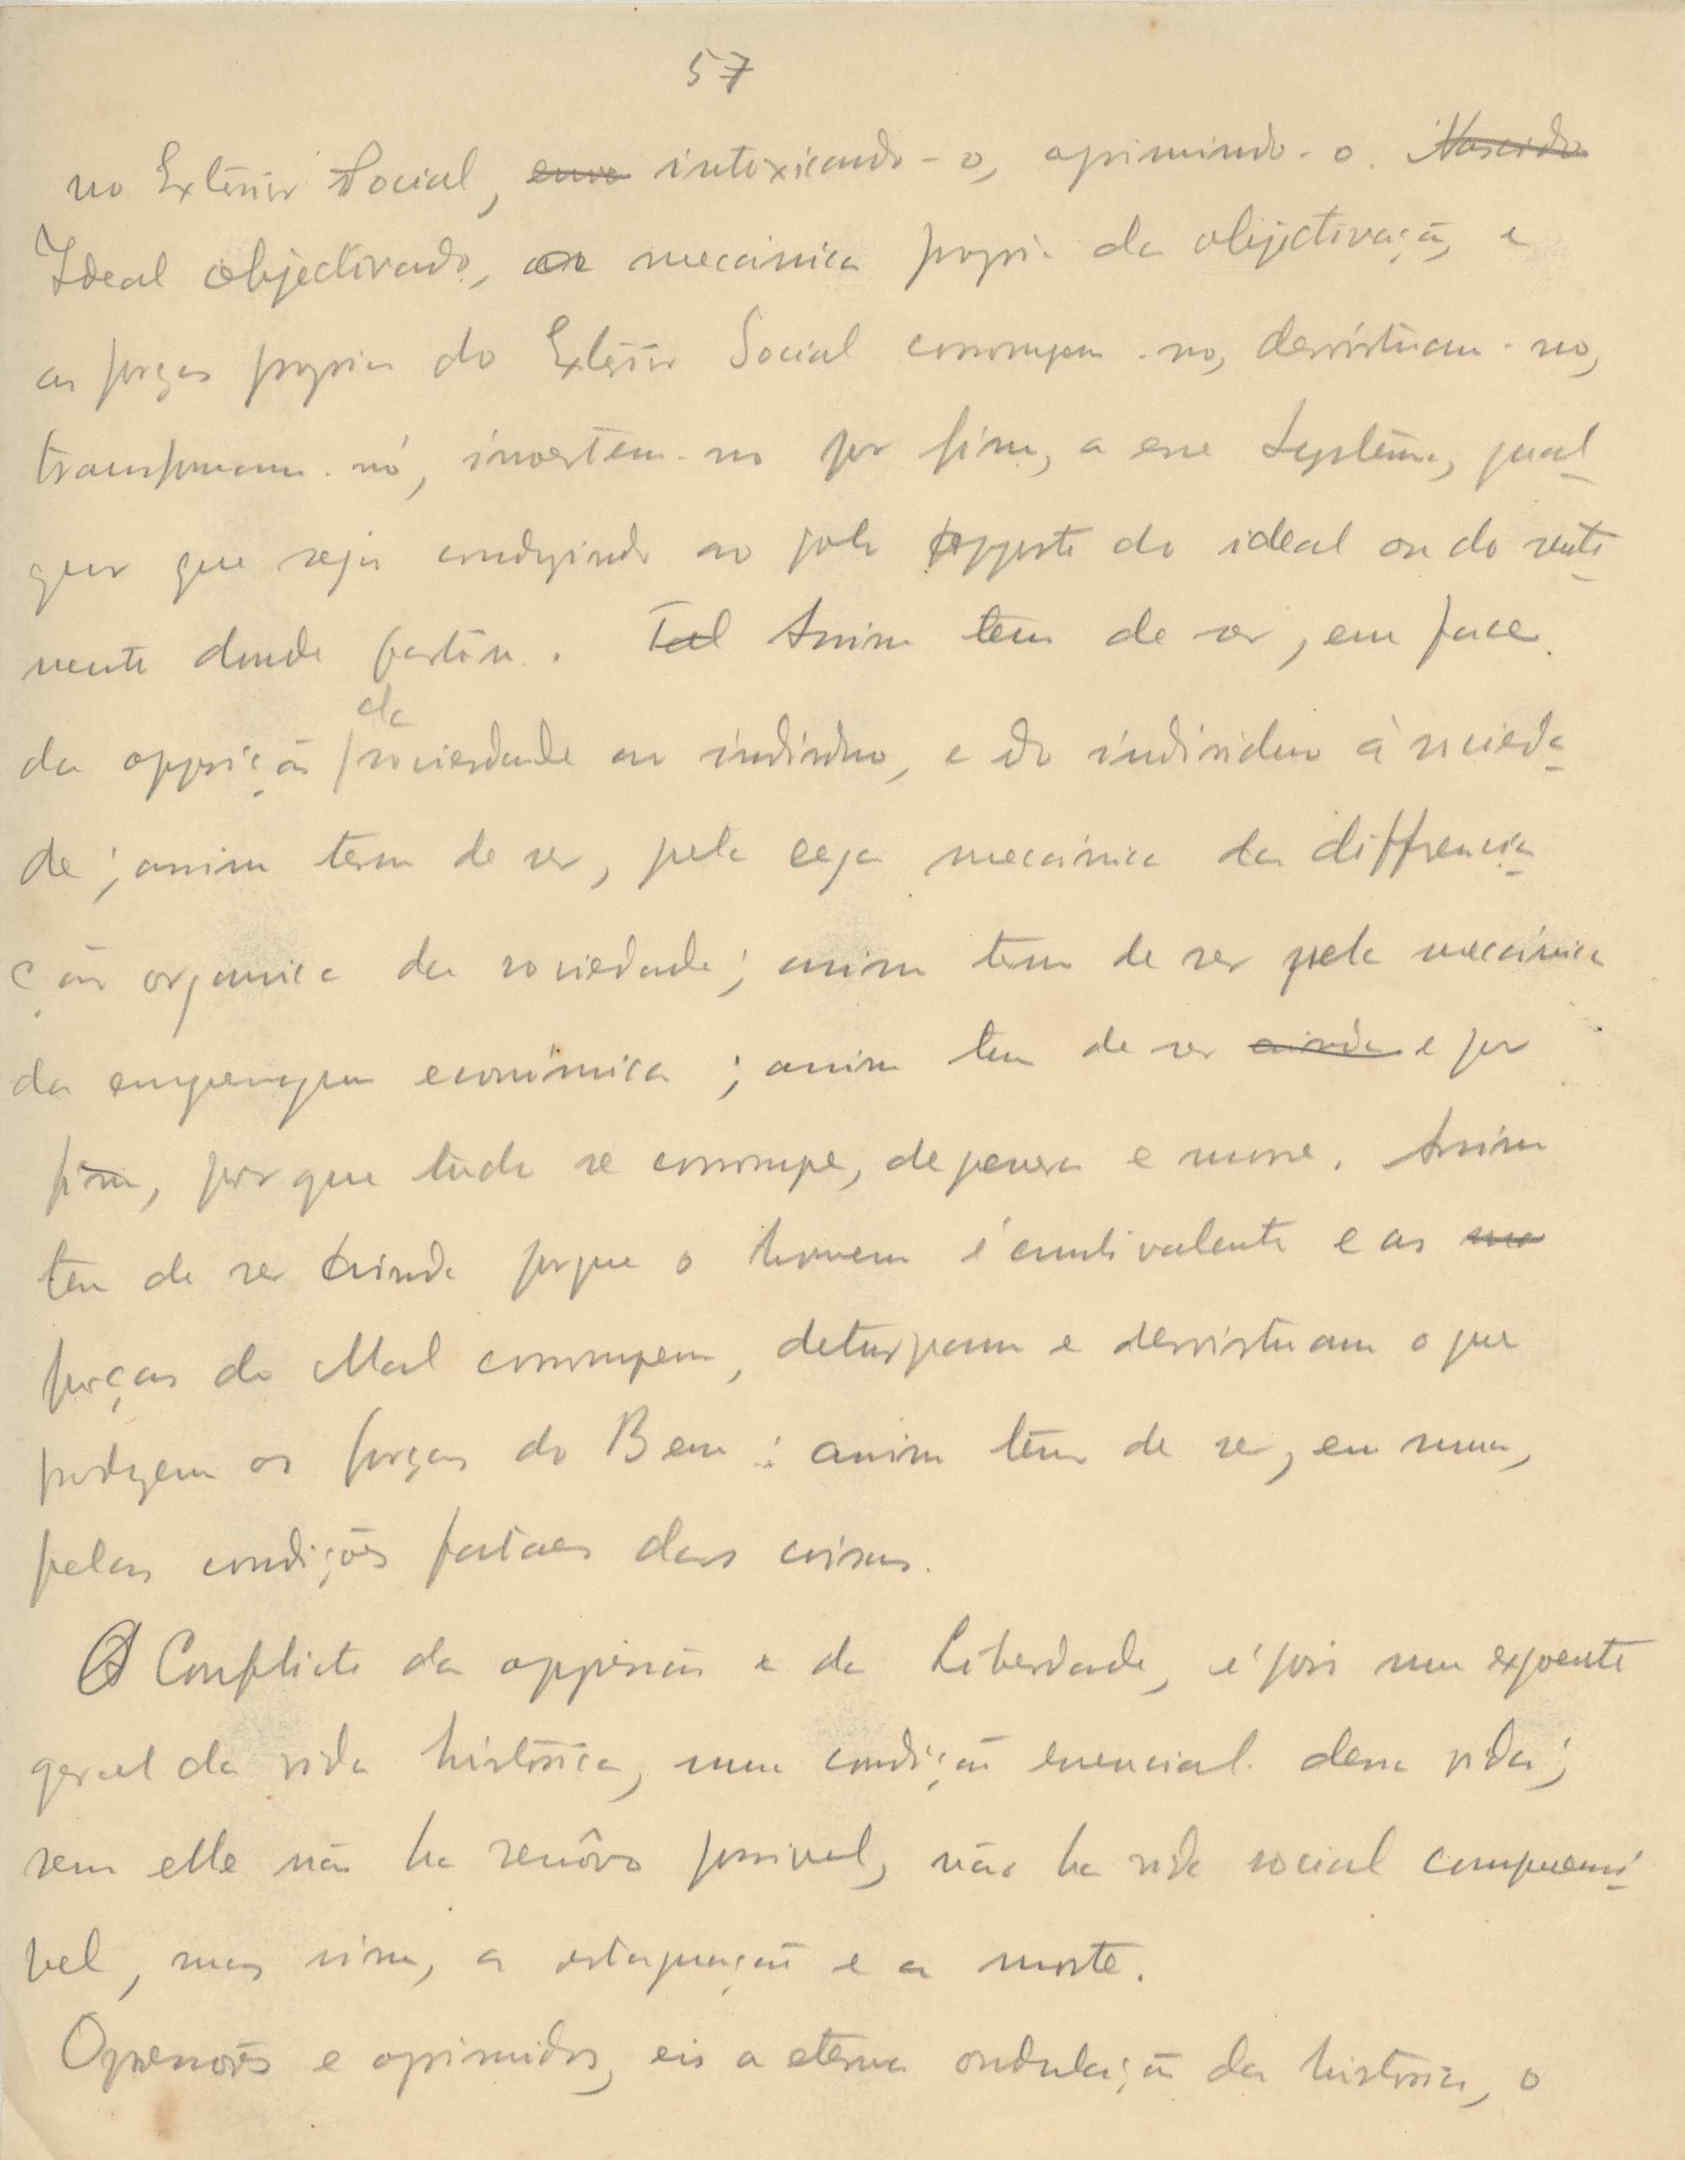 57
no Exterior Social, intoxicando-o, oprimindo-o. Nascido
Ideal objectivado, a mecânica propria da objectivação, e
as forças proprias do Exterior Social corrompem-no, desvirtuam-no,
transformam-no, invertem-no por fim, a esse Systema, qual
quer que seja conduzindo ao polo opposto do ideal ou do senti
mento donde partiu. Tal Assim tem de ser, em face
da opposição da sociedade ao individuo, e do individuo à socieda
de; assim tem de ser, pela cega mecânica da differencia
ção organica da sociedade; assim tem de ser pela mecânica
da engrenagem económica; assim tem de ser ainda e por
fim, porque tudo se corrompe, degenera e morre. Assim
tem de ser ainda porque o homem é ambivalente e as
forças do Mal corrompem, deturpam e desvirtuam o que
produzem as forças do Bem: assim tem de ser, em suma,
pelas condições fataes das coisas.
O Conflicto da oppressão e da Liberdade, é pois um expoente
geral da vida histórica, uma condição essencial dessa vida;
sem elle não ha renôvo possivel, não ha vida social compreensi
vel, mas sim, a estagnação e a morte.
Opressores e oprimidos, eis a eterna ondulação da história, o